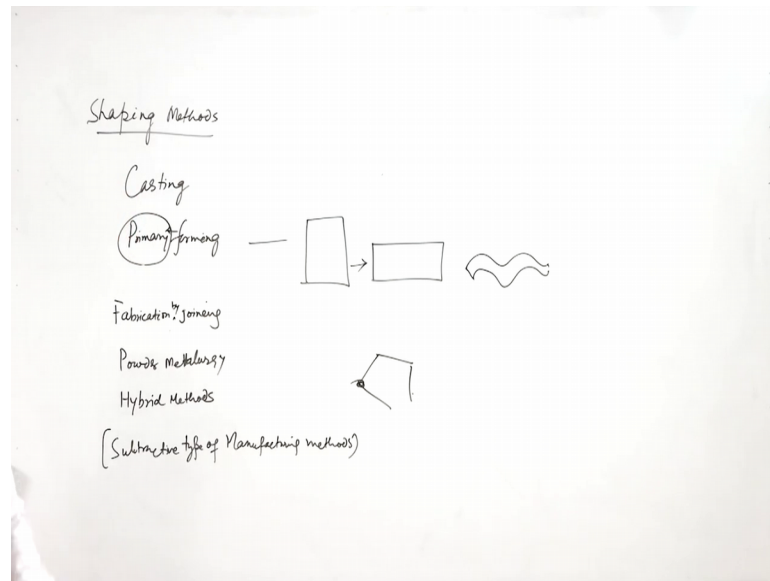 Shaping Methods
Casting
Primary forming
Fabrication by joining
Powder Metallurgy
Hybrid Methods
(Subtractive type of Manufacturing methods)